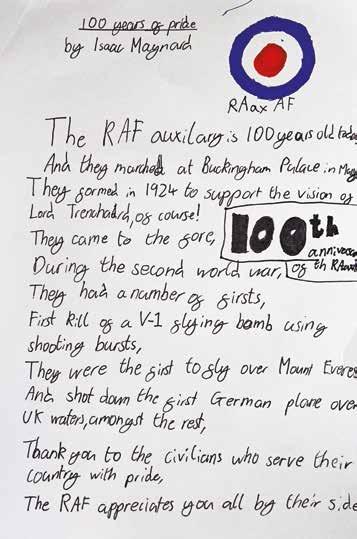 100 years of pride
by Isaac Maynard
RAax AF
The RAF auxilary is 100 years old today
And they marched at Buckingham Palace in May
They formed in 1924 to support the vision of
Lord Trenchard, of course!
They came to the fore,
100th
anniversary
of th RAauxAF
During the second world war,
They had a number of firsts,
First kill of a V-1 flying bomb using
shooting bursts,
They were the first to fly over Mount Everes
And shot down the first German plane over
UK waters, amongst the rest,
Thank you to the civilians who serve their
country with pride,
The RAF appreciates you all by their side